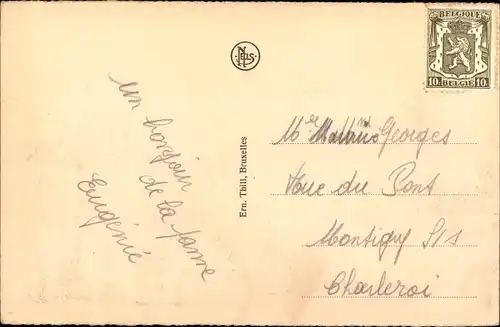 un bonjour
de la part
Eugénie
Nels
Ern. Thill, Bruxelles
BELGIQUE
10c 10c
BELGIË
Georges
Rue du Pont
Montigny S/S
Charleroi